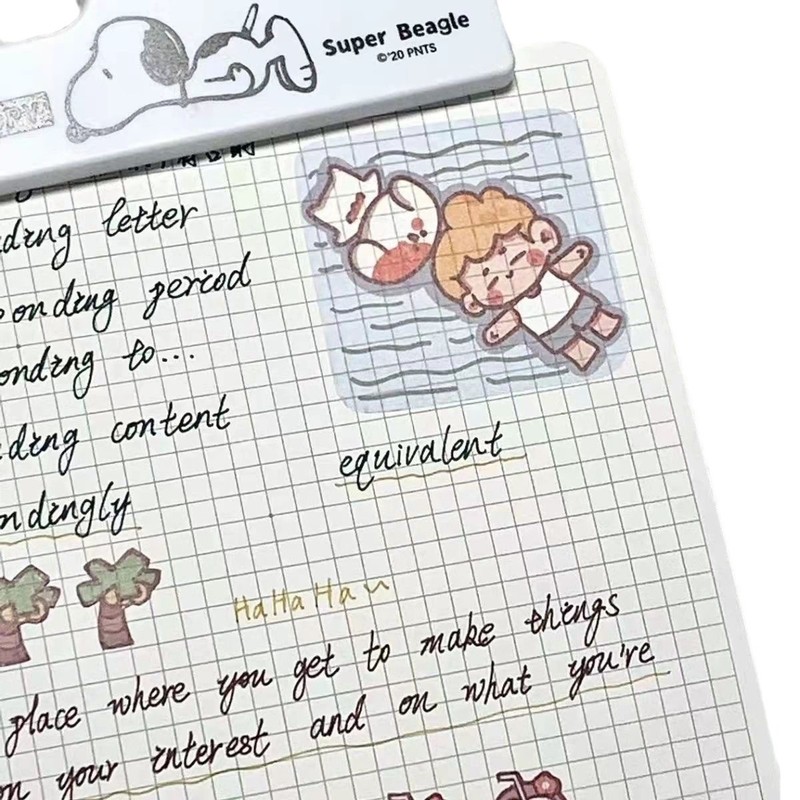 Super Beagle
©'20 PNTS
ding letter
onding period
onding to...
ding content
ndingly
equivalent
HaHaHa~
place where you get to make things
on your interest and on what you're